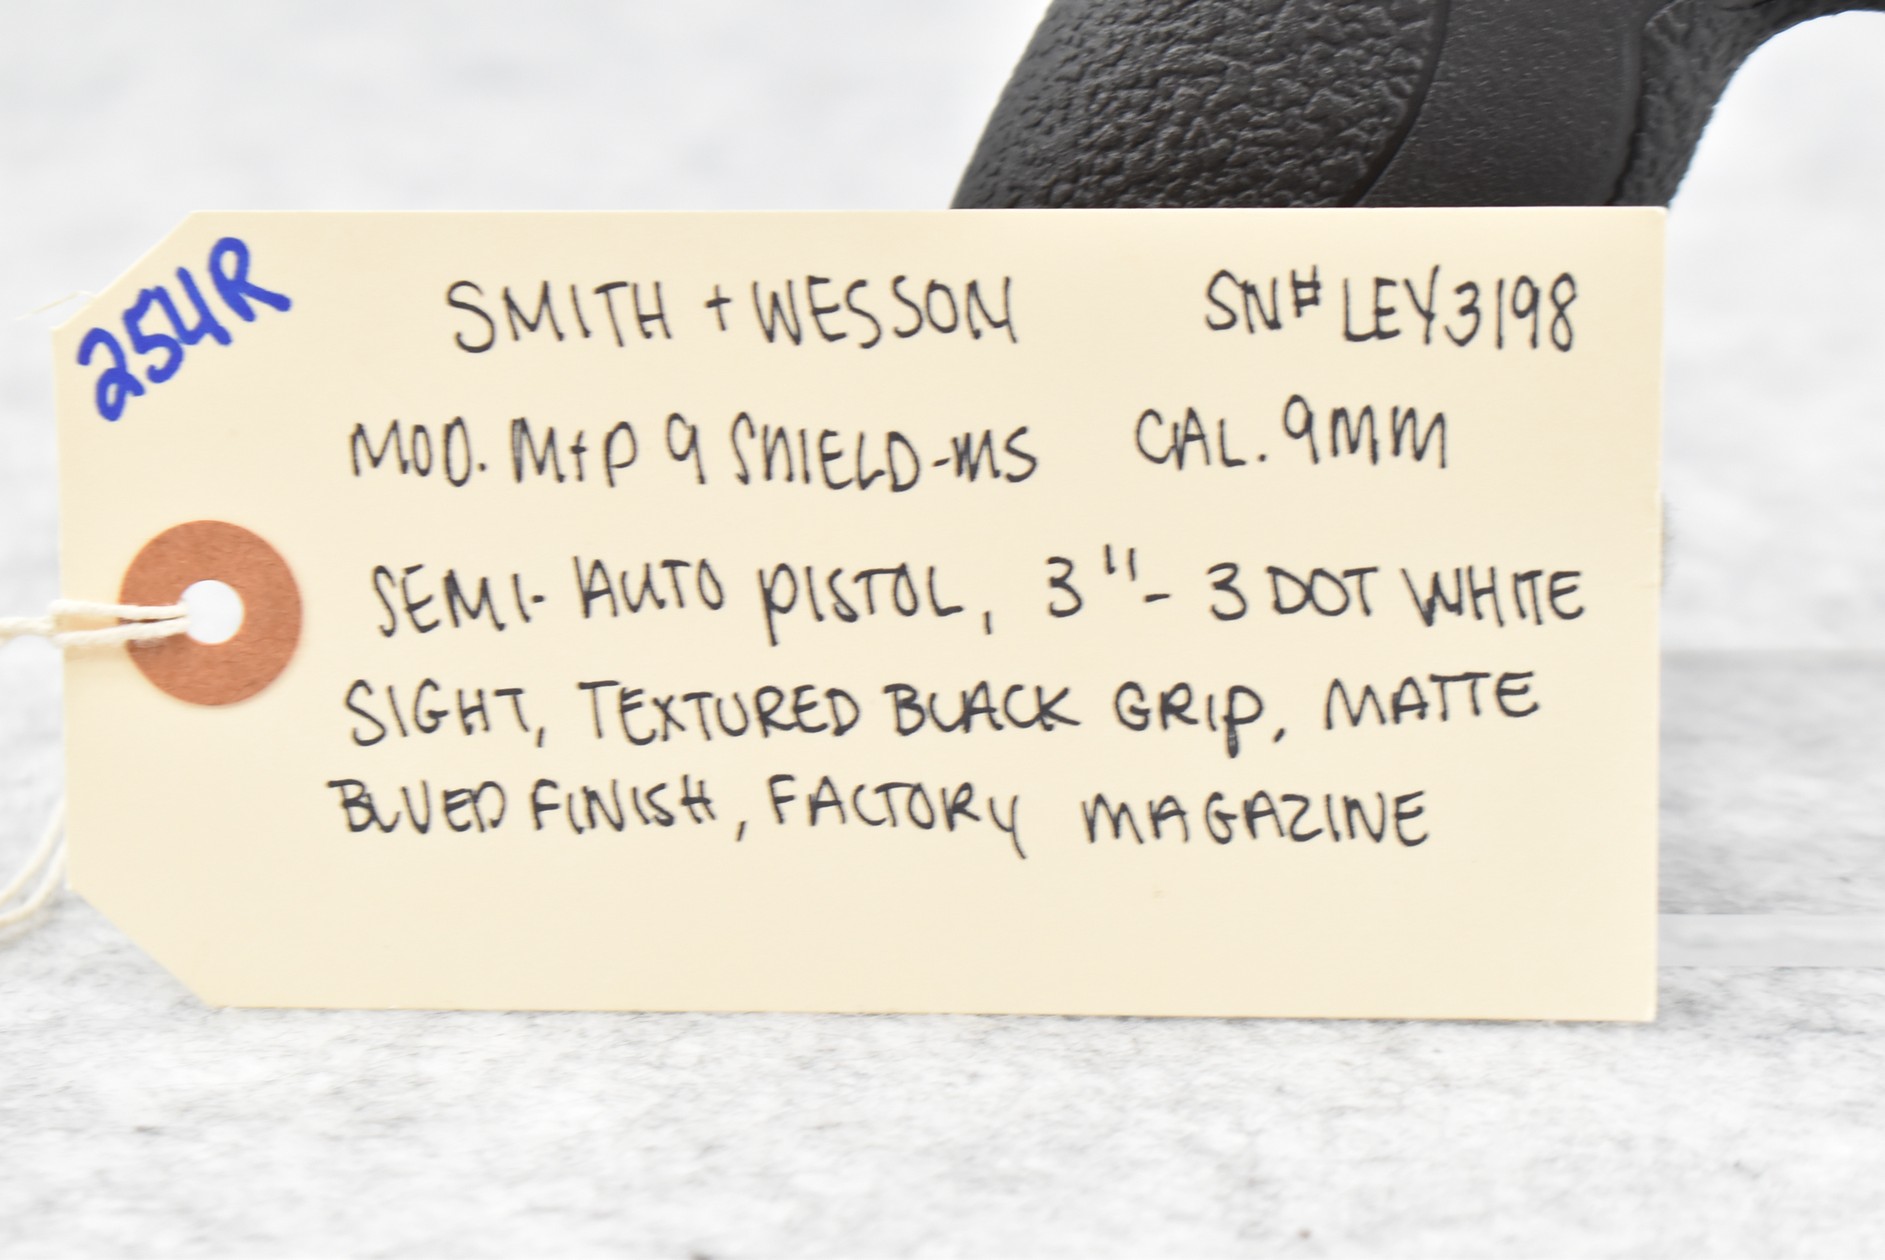 254R
SMITH + WESSON SN# LEY3198
MOD. M+P 9 SHIELD-MS CAL. 9MM
SEMI-AUTO PISTOL, 3"- 3 DOT WHITE
SIGHT, TEXTURED BLACK GRIP, MATTE
BLUED FINISH, FACTORY MAGAZINE